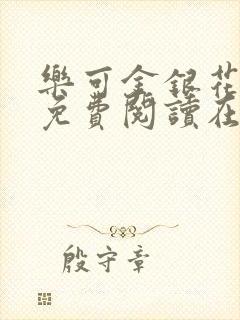 樂可金銀花
免費閱讀在
殷守章